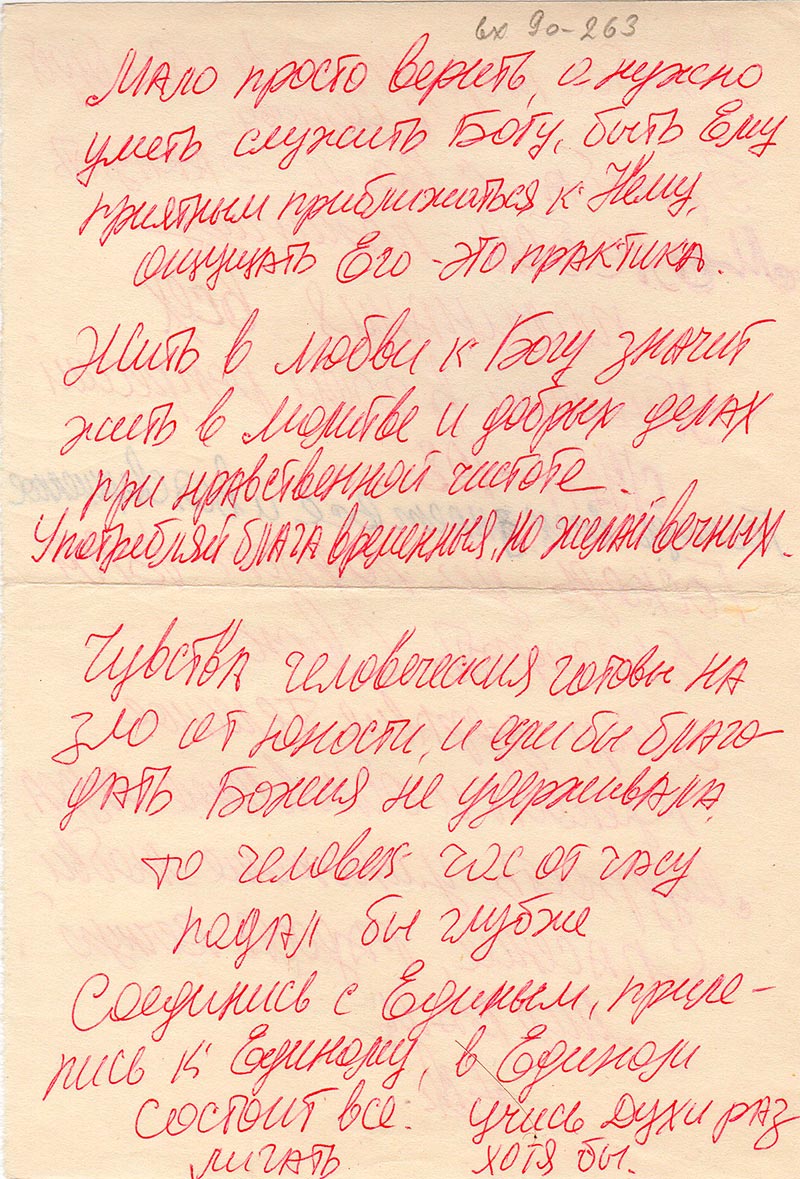 вх 90-263
Мало просто верить, а нужно
уметь служить Богу, быть Ему
приятным приближаться к Нему,
ощущать Его - это практика.
Жить в любви к Богу значит
жить в молитве и добрых делах
при нравственной чистоте.
Употребляй блага временныя, но желай вечных.
Чувства человеческия готовы на
зло от юности, и если бы благо-
дать Божия не удерживала,
то человек час от часу
падал бы глубже
Соединись с Единым, приле-
пись к Единому, в Едином
состоит все. учись духи раз
личать хотя бы.